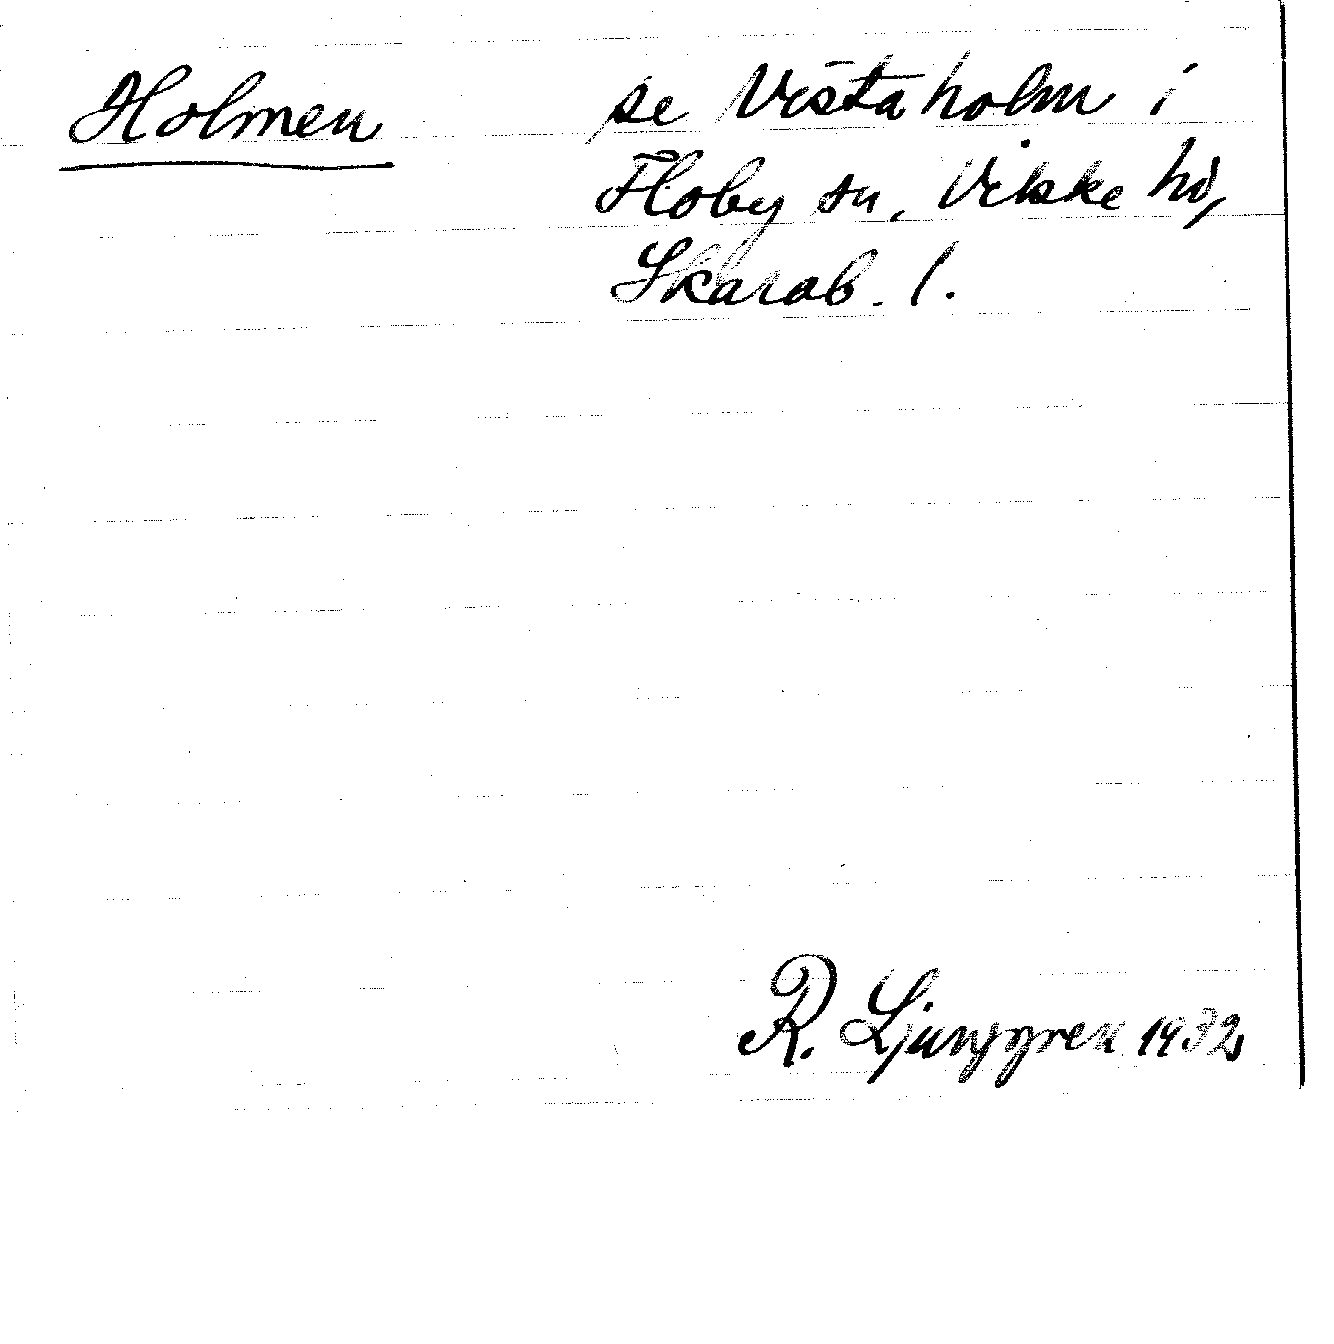 Holmen se Vistaholm i
Floby sn, Vilske hd,
Skarab. l.
R. Ljunggren 1932